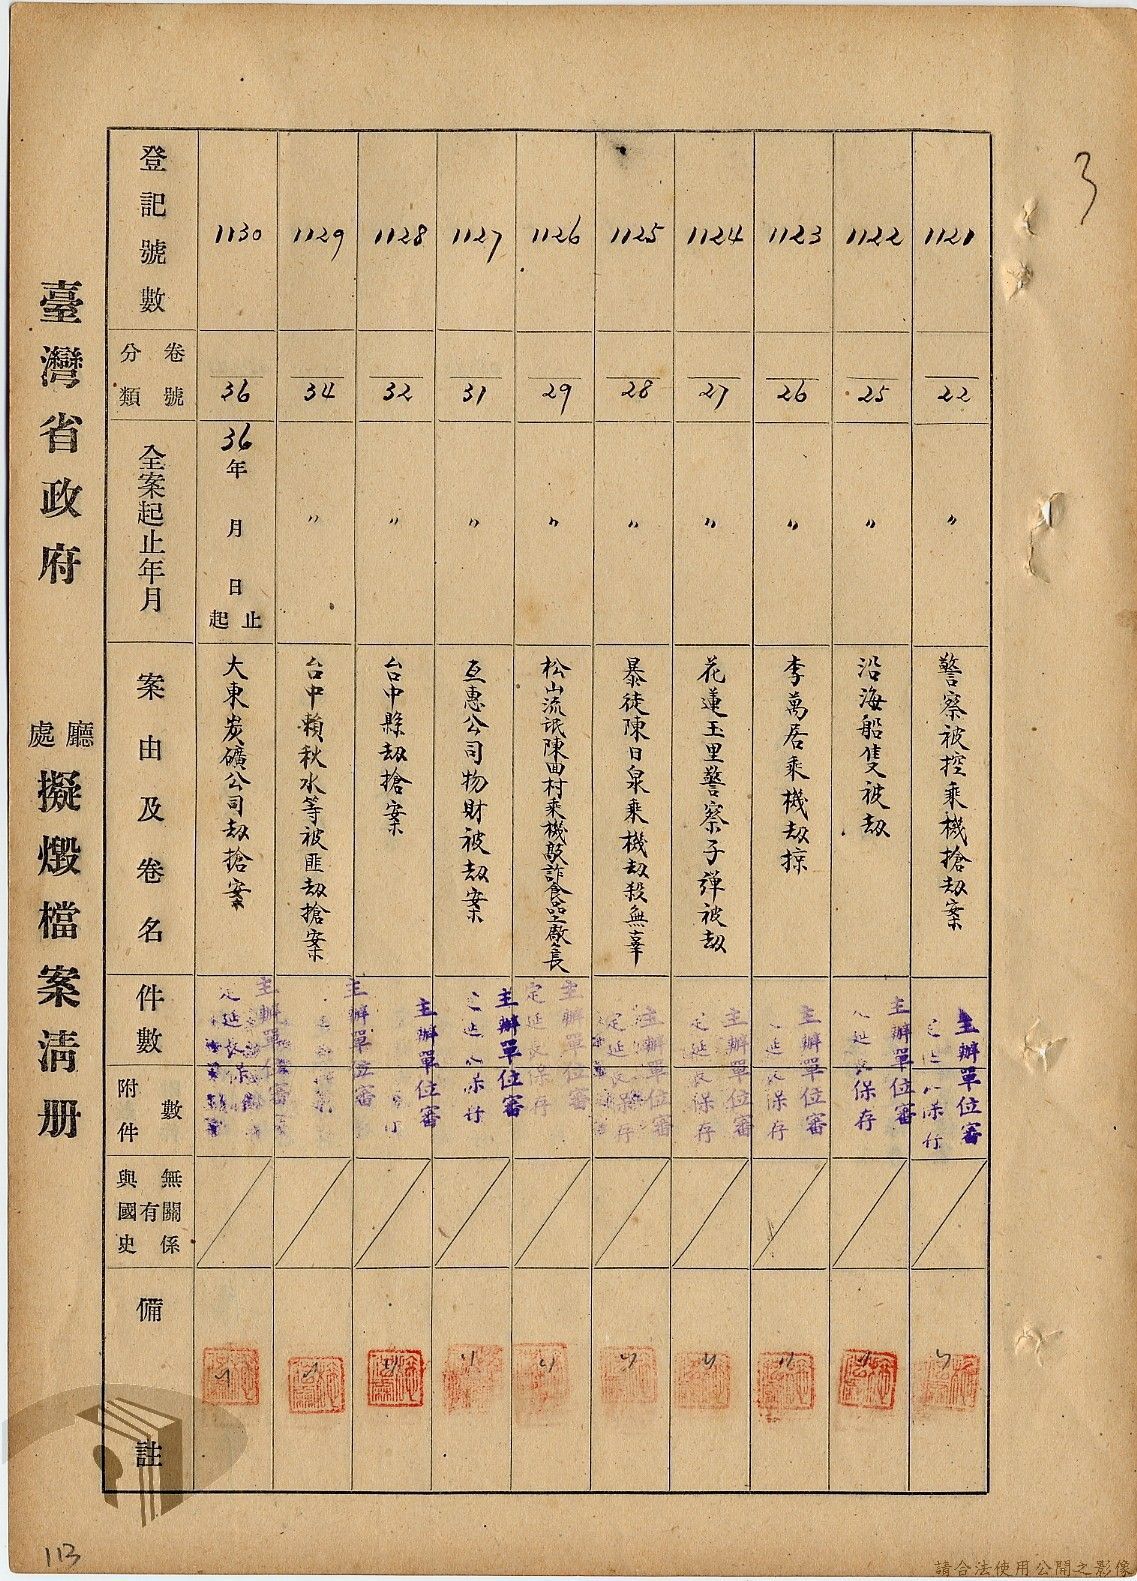 3
臺灣省政府 廳處 擬燬檔案清册
登記號數
卷號
分類
全案起止年月
案由及卷名
件數
附件數
與國史有無關係
備註
1130
36
36年 月 日起止
大東炭礦公司劫搶案
1129
34
〃
台中賴秋水等被匪劫搶案
1128
32
〃
台中縣劫搶案
1127
31
〃
互惠公司物財被劫案
1126
29
〃
松山流氓陳田村乘機敲詐食品廠長
1125
28
〃
暴徒陳日泉乘機劫殺無辜
1124
27
〃
花蓮玉里警察子彈被劫
1123
26
〃
李萬居乘機劫掠
1122
25
〃
沿海船隻被劫
1121
22
〃
警察被控乘機搶劫案
主辦單位審
定延長保存
主辦單位審
主辦單位審
主辦單位審
保存
主辦單位審
定延長保存
主辦單位審
定延長保存
主辦單位審
定延長保存
主辦單位審
延長保存
主辦單位審
延長保存
主辦單位審
保存
113
請合法使用公開之影像